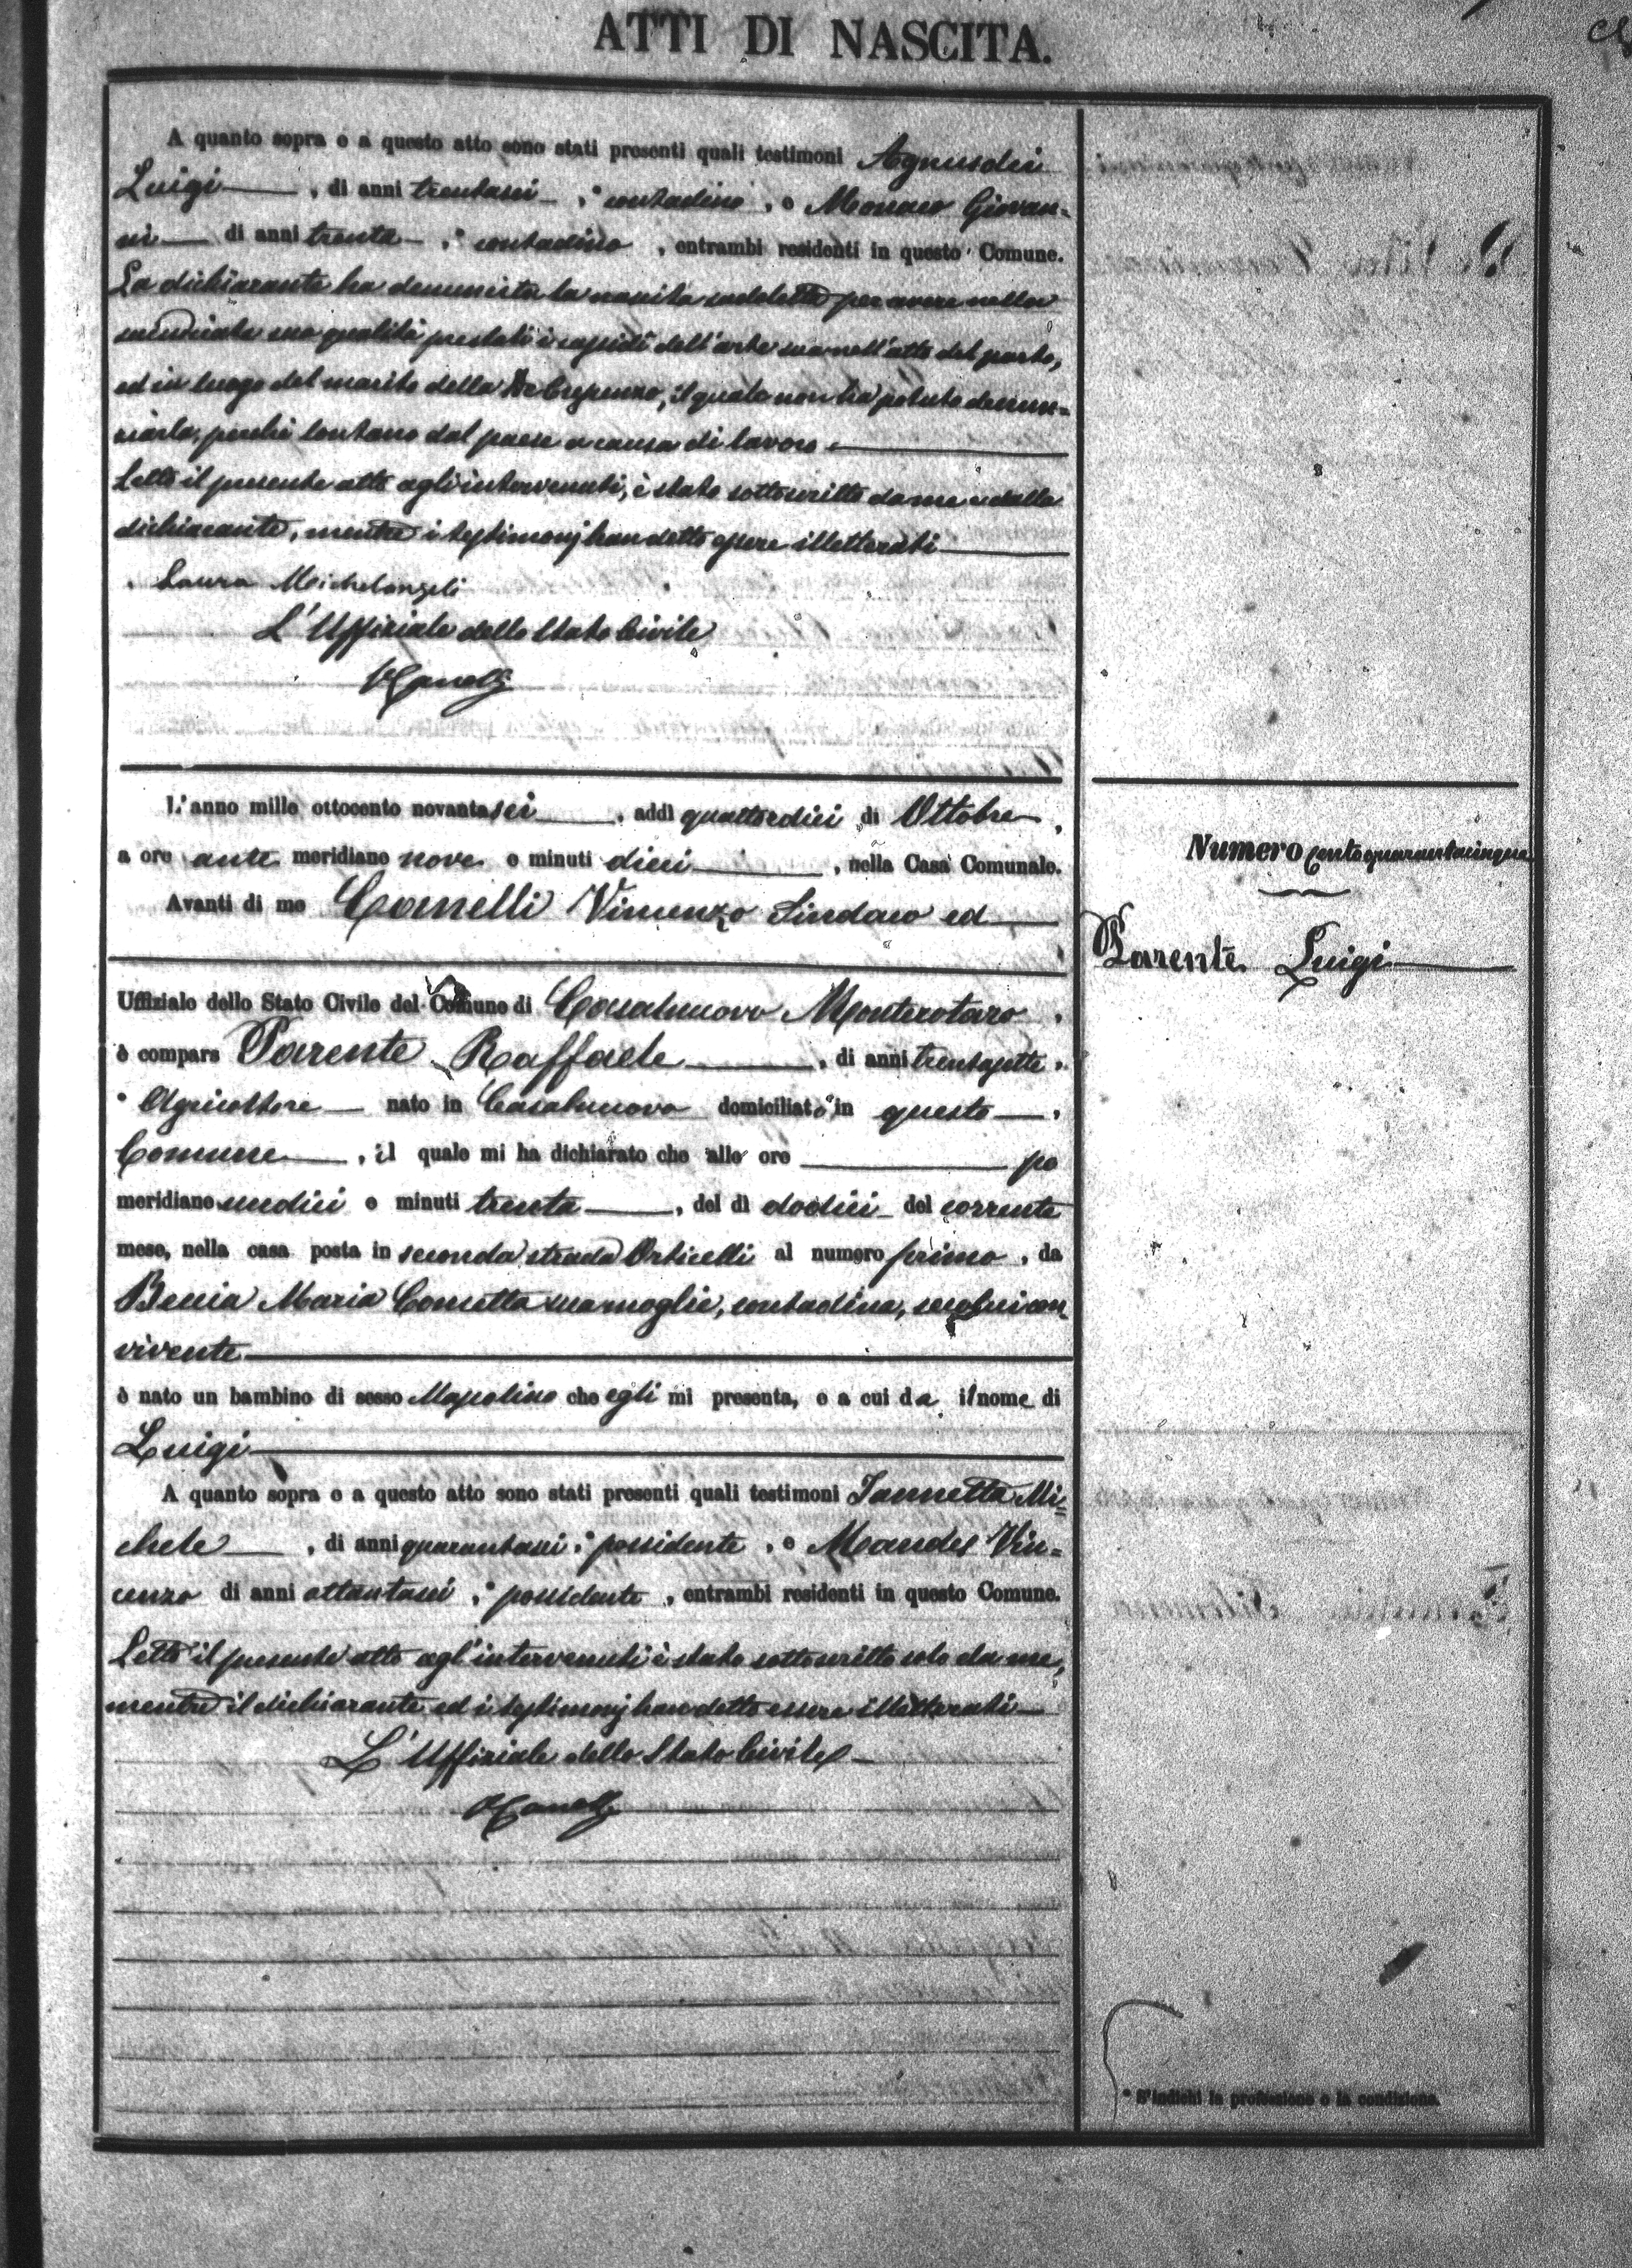 ATTI DI NASCITA.
A quanto sopra e a questo atto sono stati presenti quali testimoni Agnusdei
Luigi , di anni trentasei , * contadino , e Monaco Giovan=
ni di anni trenta , * contadino , entrambi residenti in questo Comune.
La dichiarante ha denunciata la nascita suddetta per avere nella
enunciata sua qualità prestati i sussidi dell'arte sua nell'atto del parto,
ed in luogo del marito della De Crescenzo, il quale non ha potuto denun=
ciarla, perchè lontano dal paese a causa di lavoro.
Letto il presente atto agli intervenuti, è stato sottoscritto da me e dalla
dichiarante, mentre i testimonj han detto essere illetterati
Laura Michelangeli
L'Uffiziale dello Stato Civile
L'anno mille ottocento novantasei , addì quattordici di Ottobre ,
a ore ante meridiane nove e minuti dieci , nella Casa Comunale.
Avanti di me Canelli Vincenzo Sindaco ed
Uffiziale dello Stato Civile del Comune di Casalnuovo Monterotaro ,
è comparso Parente Raffaele , di anni trentasette ,
* Agricoltore nato in Casalnuovo domiciliato in questo ,
Comune , il quale mi ha dichiarato che alle ore po
meridiane undici e minuti trenta , del dì dodici del corrente
mese, nella casa posta in seconda strada Orticelli al numero primo , da
Maria Concetta sua moglie, contadina, seco lui con
vivente
è nato un bambino di sesso Mascolino che egli mi presenta, e a cui da il nome di
Luigi
A quanto sopra e a questo atto sono stati presenti quali testimoni Iannetta Mi=
chele , di anni quarantasei , * possidente , e Mandes Vin=
cenzo di anni ottantasei , * possidente , entrambi residenti in questo Comune.
Letto il presente atto agl'intervenuti è stato sottoscritto solo da me,
mentre il dichiarante ed i testimonj han detto essere illetterati
L'Uffiziale dello Stato Civile
Numero centoquarantacinque
Parente Luigi
* S'indichi la professione o la condizione.